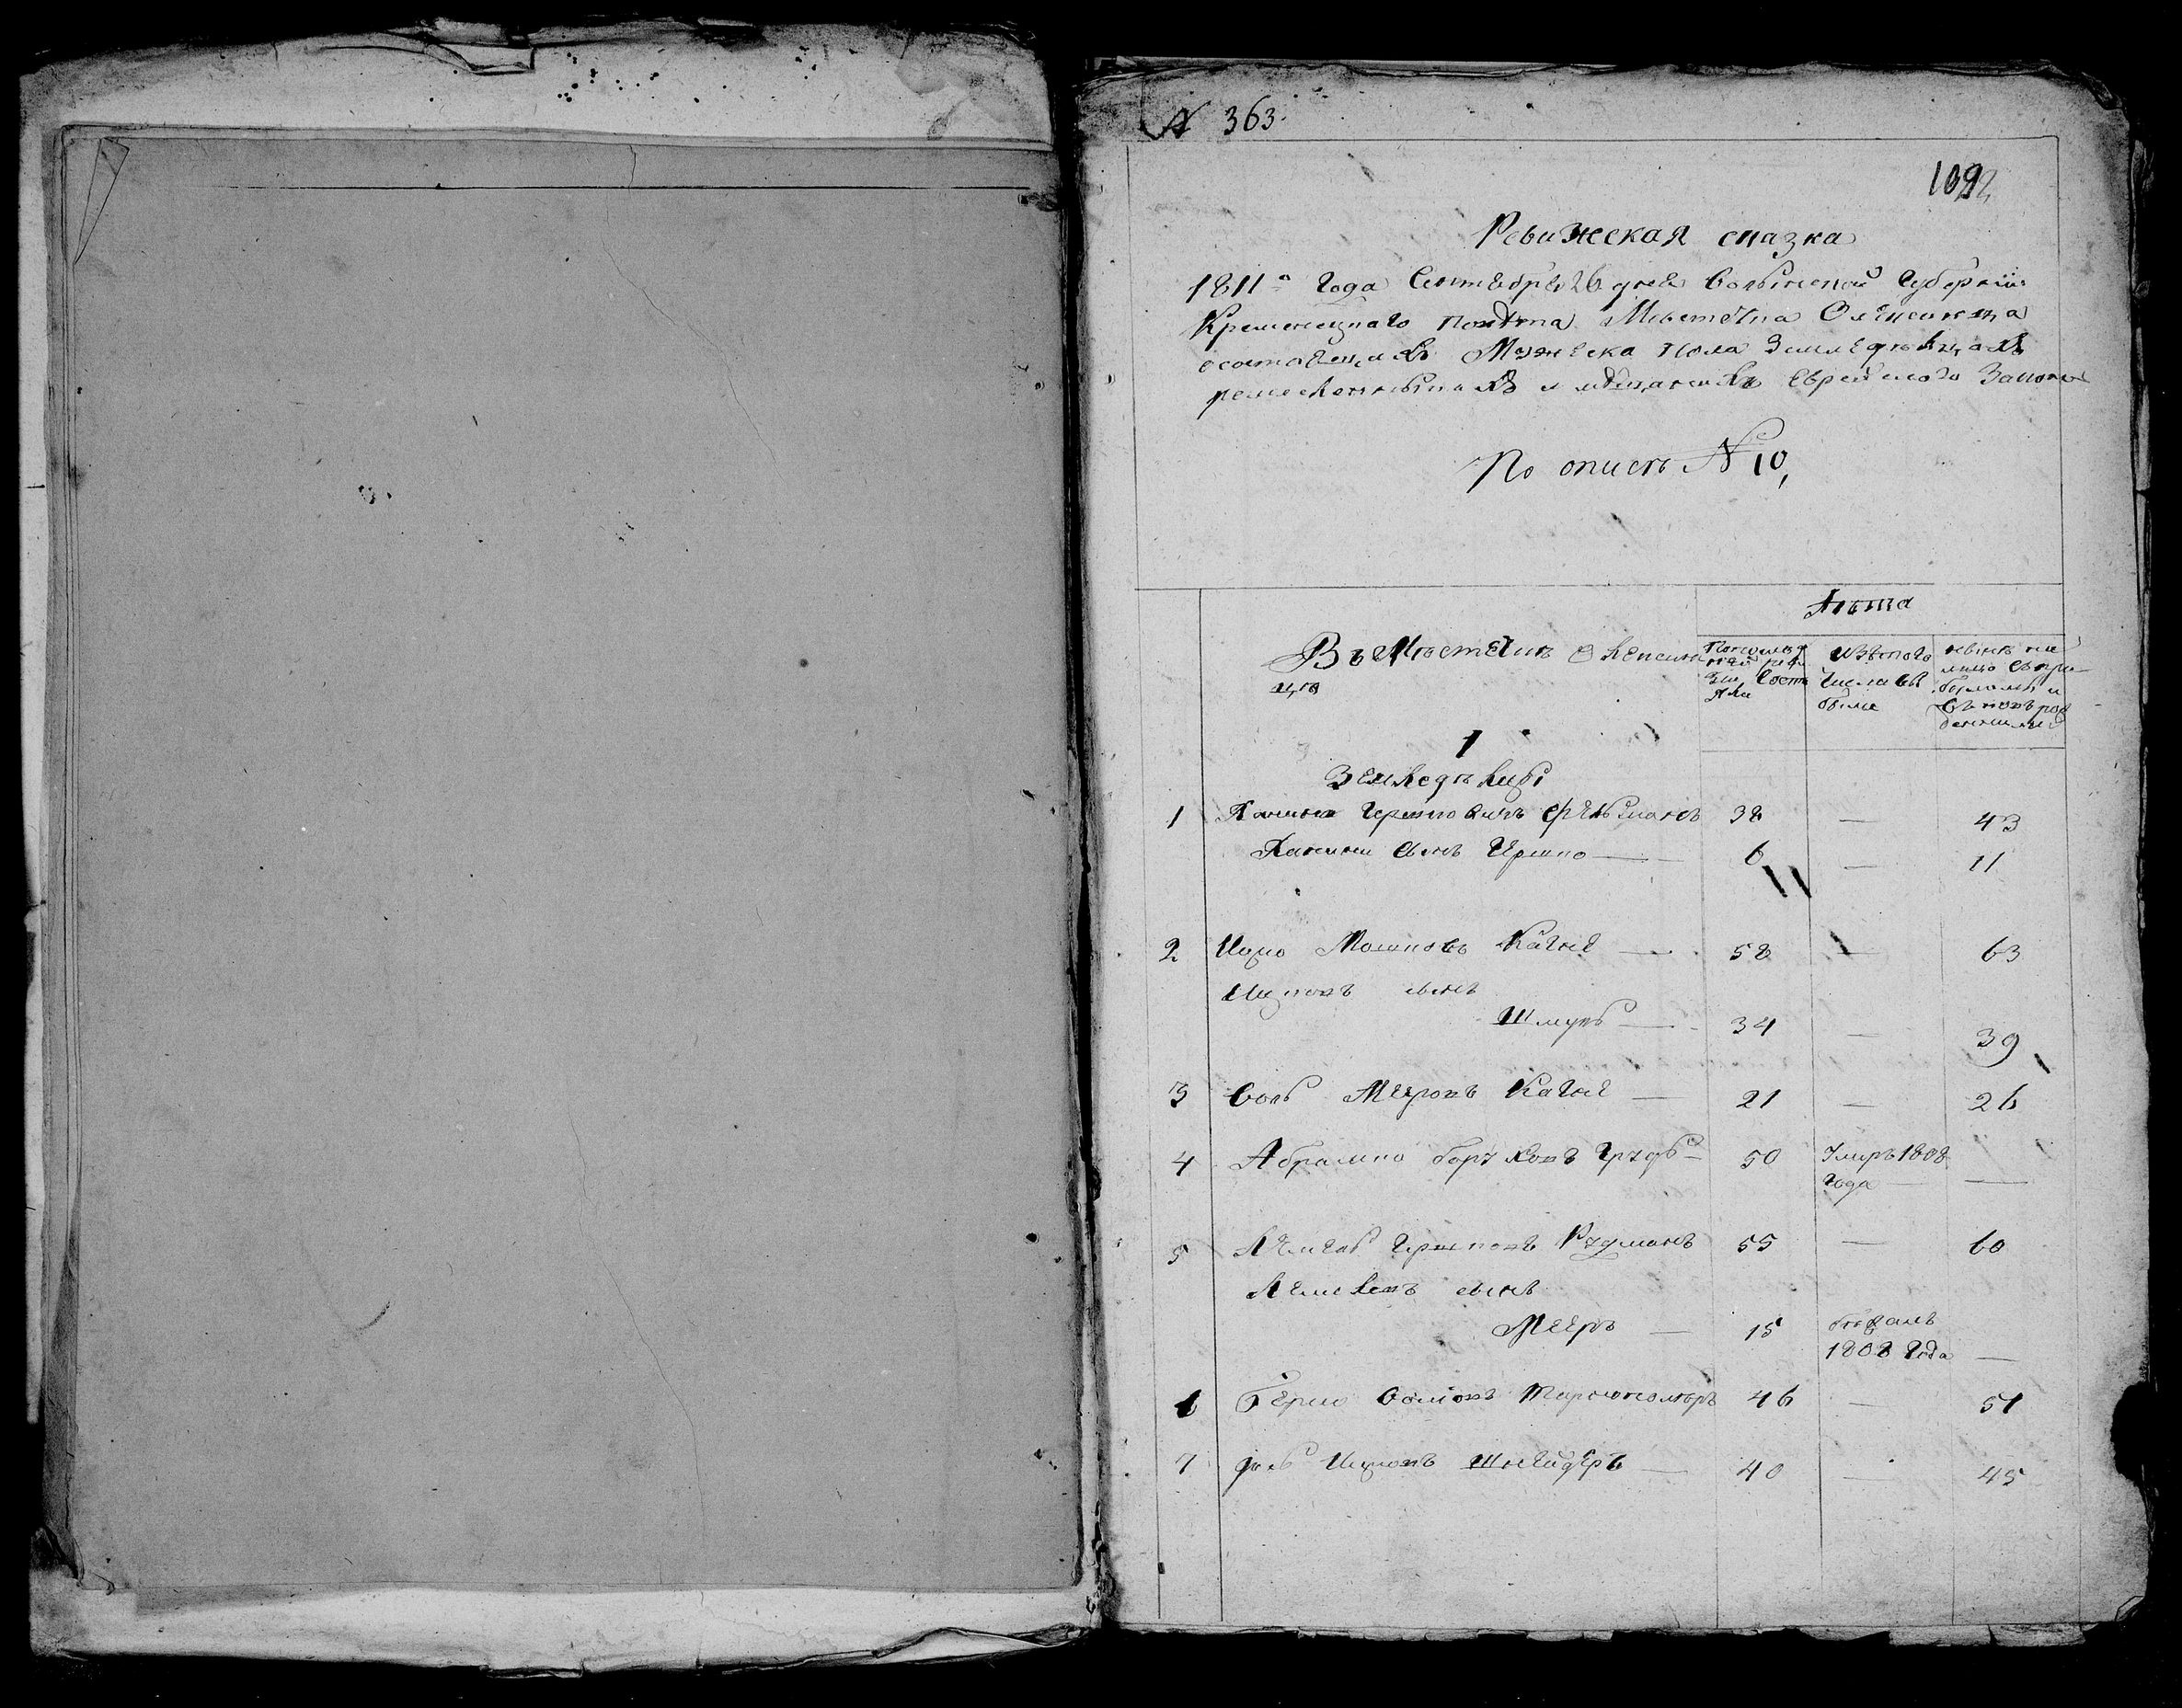 N 363.
109
Ревижская сказка
1811го Года Сентебря 26 дня Волынской Губернии
Кременецкаго повѣта Местечка Олексинца
о состоящихъ Мужеска пола Земледѣльцахъ
ремесленникахъ и мѣщанехъ Еврейскаго Закона
По описѣ N 10,
Лѣта
Въ Мѣстечкѣ Олексин
цѣ
По последней ревизии состояли
изъ того числа выбыло
нынѣ на лицо съ прибылыми и съ новорожденными
1
Земледѣлцы
1 Гершковичъ 38 — 43
сынъ Гершко — 6 — 11
2 Ицко Мошковъ Кагне — 58 — 63
Ицковъ сынъ
Шмуль — 34 — 39
3 Воль Мееровъ Кагне — 21 — 26
4 Абрамко 50 Умръ 1808
года — —
5 Гершковъ Рудманъ 55 — 60
сынъ
Мееръ — 15 бежалъ
1808 Года —
6 Берко 46 — 51
7 Ицковъ Шнейдеръ — 40 — 45